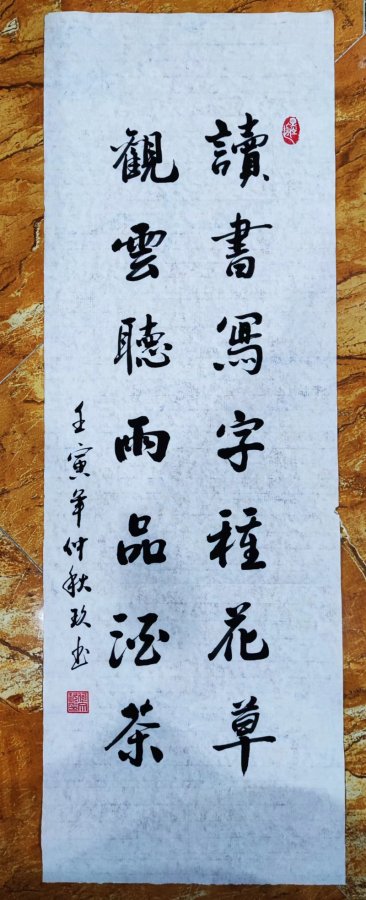 讀書寫字種花草
觀雲聽雨品酒茶
壬寅年仲秋玖书